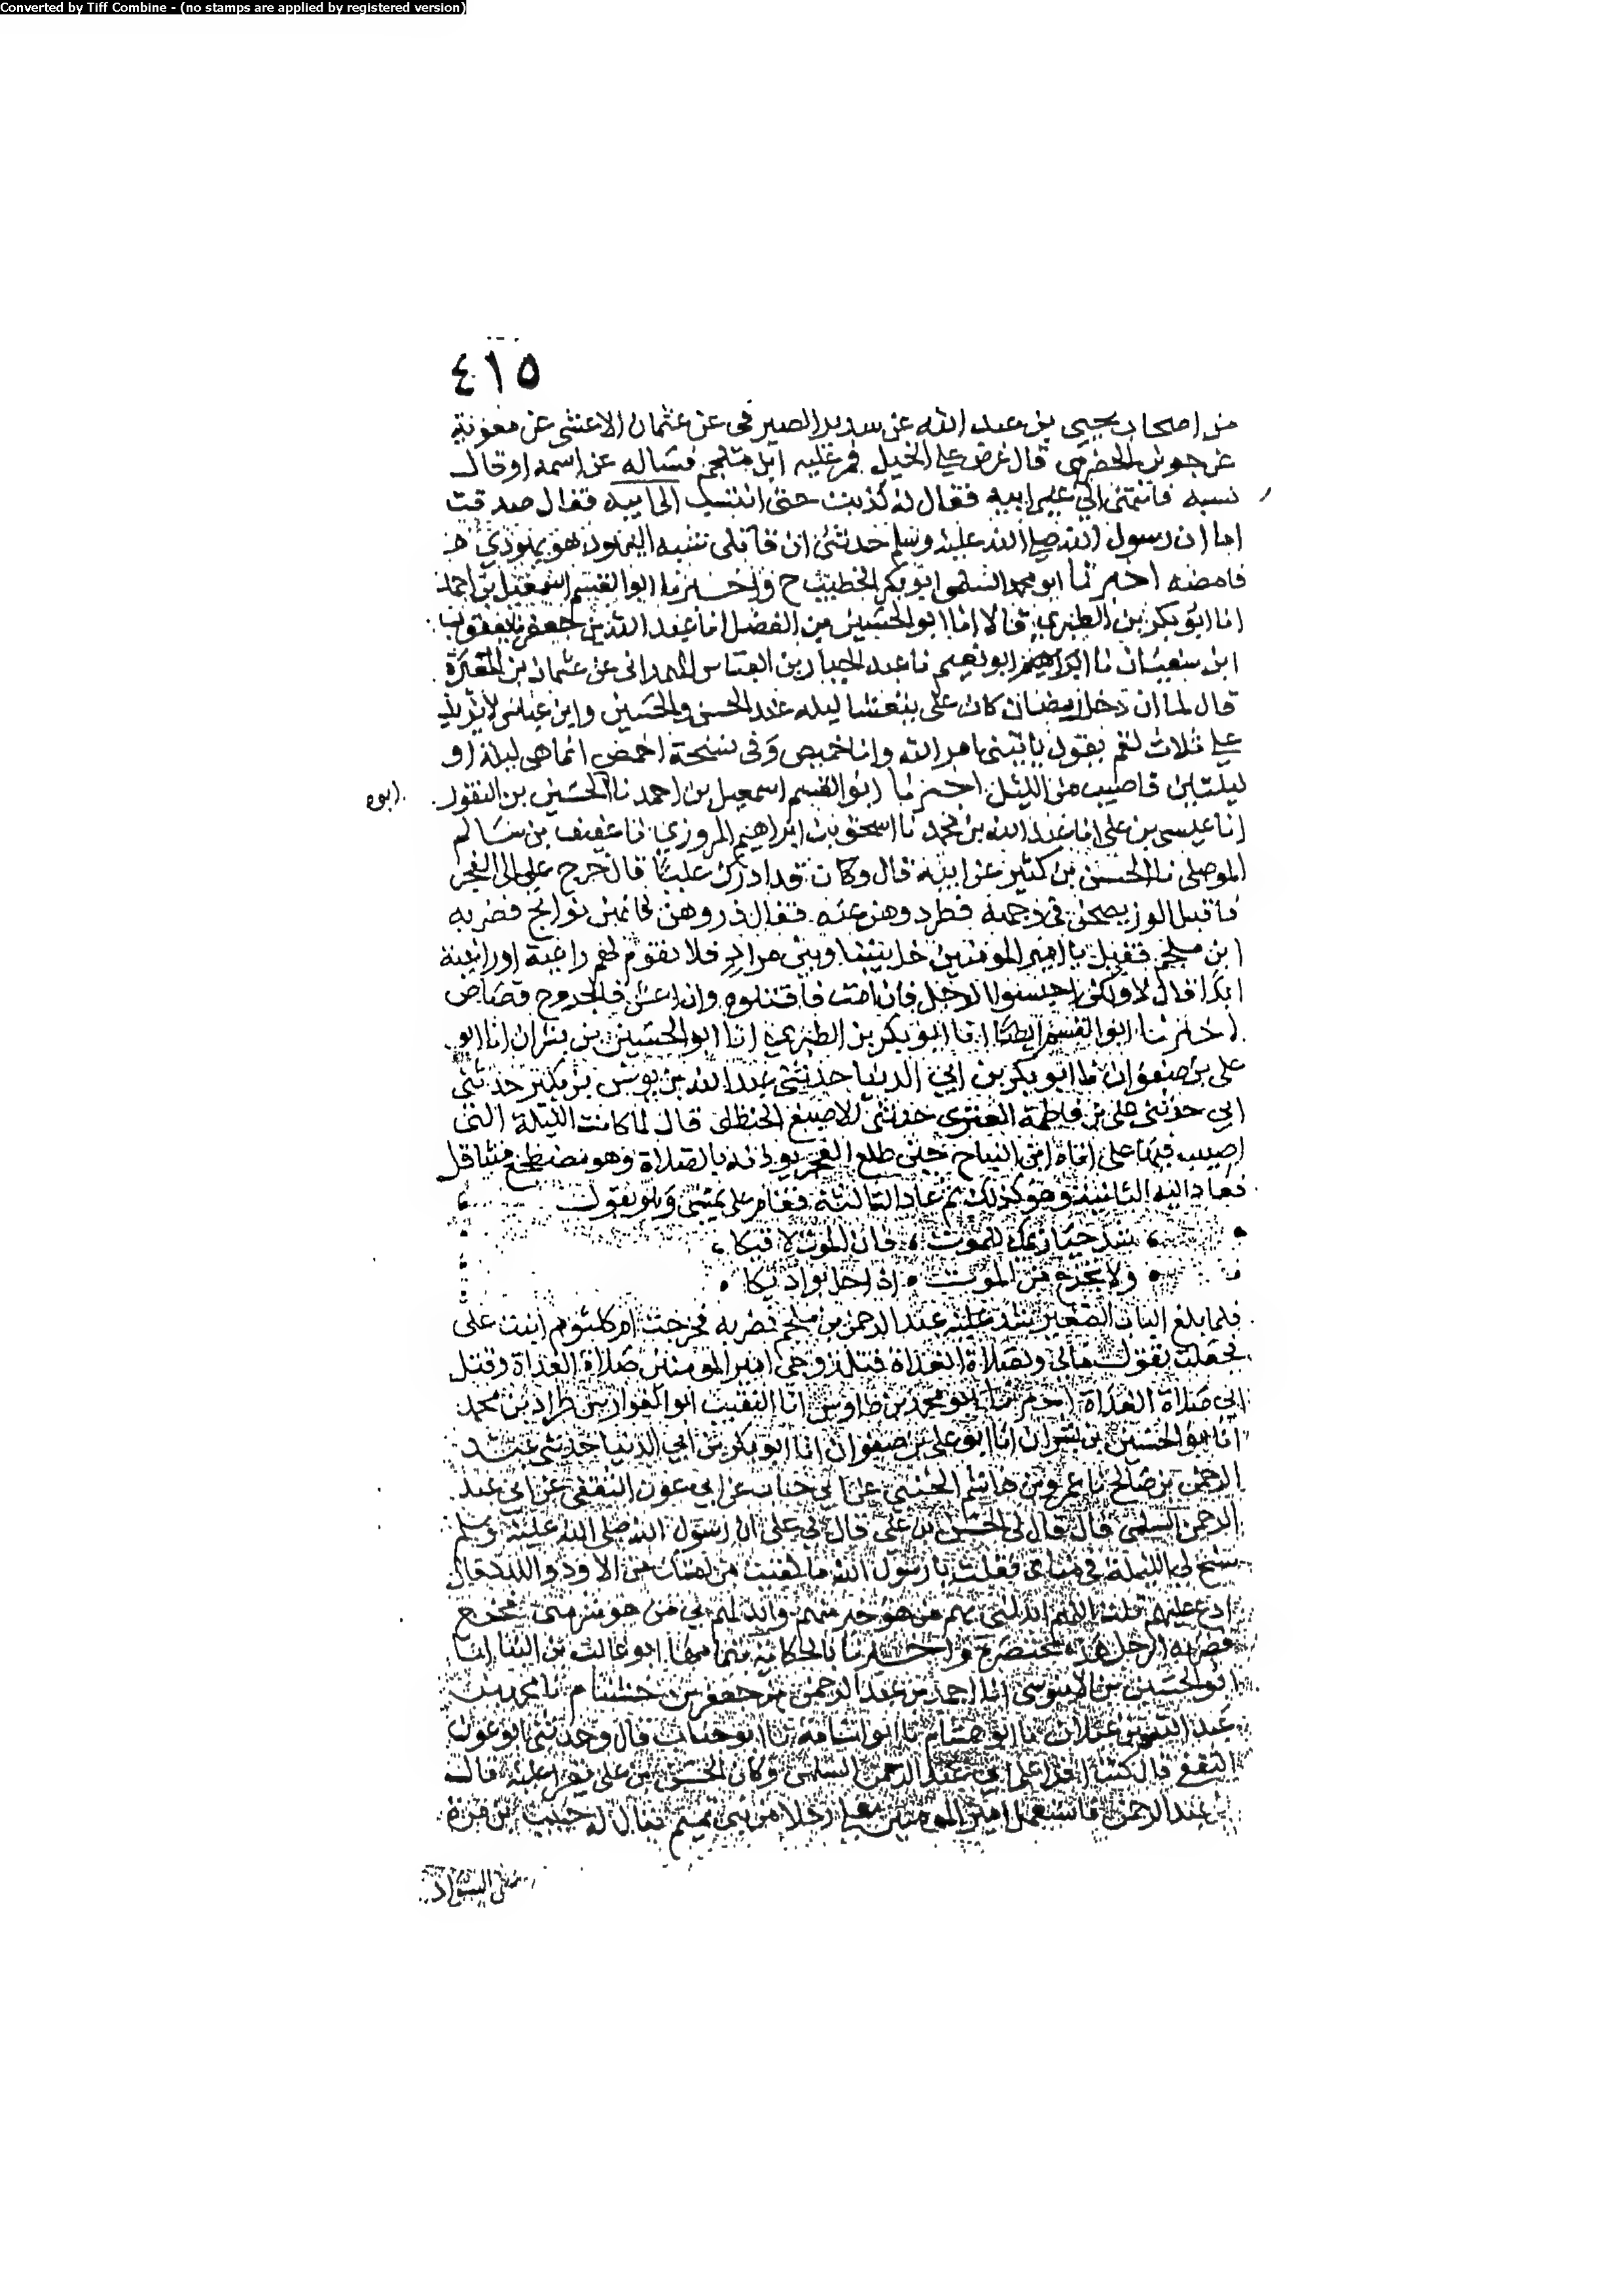 Converted by Tiff Combine - (no stamps are applied by registered version)
٤١٥
من اصحاب يحيى بن عبد الله عن سدير الصيرفى عن عثمان الاعشى عن معوية
عن جوين الحضرمى قال عرض على الخيل فمر عليه ابن ملجم فساله عن اسمه او قال
نسبه فانتمى الى غير ابيه فقال له كذبت حتى انتسب الى ابيه فقال صدقت
اما ان رسول الله صلى الله عليه وسلم حدثنى ان قاتلى شبه اليهود هو يهودى
فامضه اخبرنا ابو محمد السلمى ابو بكر الخطيب ح واخبرنا ابو القسم اسمعيل بن احمد
انا ابو بكر بن الطبرى قالا انا ابو الحسين بن الفضل انا عبد الله بن جعفر نا يعقوب
ابن سفيان نا ابو نعيم نا عبد الجبار بن العباس الهمدانى عن عثمان بن المغيرة
قال لما ان دخل رمضان كان على يتعشا ليله عند الحسن والحسين وابن عباس لا يزيد
على ثلاث لقم يقول ياتينى امر الله وانا خميص وفى نسخة اخمص انما هى ليلة او
ليلتين فاصيب من الليل اخبرنا ابو القسم اسمعيل بن احمد نا الحسين بن النقور
ابوه
انا عيسى بن على انا عبد الله بن محمد نا اسحق بن ابراهيم المروزى نا عفيف بن سالم
الموصلى نا الحسن بن كثير عن ابيه قال وكان قد ادرك عليا قال خرج على الى الفجر
فاقبل الوز يصحن فى وجهه فطردوهن عنه فقال ذروهن فانهن نوايح فضربه
ابن ملجم فقيل يا امير المومنين خل بيننا وبين مراد فلا تقوم لهم راغية او راغية
ابدا قال لا ولكن احبسوا الرجل فان امت فاقتلوه وان اعش فالجروح قصاص
اخبرنا ابو القسم ايضا انا ابو بكر بن الطبرى انا ابو الحسين بن بشران انا ابو
على بن صفوان نا ابو بكر بن ابى الدنيا حدثنى عبد الله بن يونس بن بكير حدثنى
ابى حدثنى على بن فاطمة العنزى حدثنى الاصبغ الحنظلى قال لما كانت الليلة التى
اصيب فيها على اتاه ابن النباح حين طلع الفجر يوذنه بالصلاة وهو مضطجع متثاقل
فعاد اليه الثانية وهو كذلك ثم عاد الثالثة فقام على يمشى وهو يقول
شد حيازيمك للموت فان الموت لاقيكا
ولا تجزع من الموت اذا حل بواديكا
فلما بلغ الباب الصغير شد عليه عبد الرحمن بن ملجم فضربه فخرجت ام كلثوم ابنت على
فجعلت تقول مالى ولصلاة الغداة قتل زوجى امير المومنين صلاة الغداة وقتل
ابى صلاة الغداة اخبرنا ابو محمد بن طاوس انا النقيب ابو الفوارس طراد بن محمد
انا ابو الحسين بن بشران انا ابو على بن صفوان انا ابو بكر بن ابى الدنيا حدثنى عبد
الرحمن بن صالح نا عمرو بن هاشم الجنبى عن ابى جناب عن ابى عون الثقفى عن ابى عبد
الرحمن السلمى قال قال لى الحسن بن على قال لى على ان رسول الله صلى الله عليه وسلم
سنح لى الليلة فى منامى فقلت يا رسول الله ما لقيت من امتك من الاود واللدد قال
ادع عليهم قلت اللهم ابدلنى بهم من هو خير منهم وابدلهم بى من هو شر منى فخرج
فضربه الرجل هذه مختصرة واخبرنا بالحكاية بتمامها ابو غالب بن البنا انا
ابو الحسين بن الابنوسى انا احمد بن عبد الرحمن بن جعفر بن خشنام نا
عبد نا ابو هشام نا ابو اسامة نا ابو جناب قال وحدثنى ابو عون
الثقفى قال كنت اقرا على ابى عبد الرحمن السلمى وكان الحسن بن على يقرا عليه قال
عبد الرحمن فاستعمل امير المومنين رجلا من بنى تميم يقال له حبيب بن قرة
على السواد